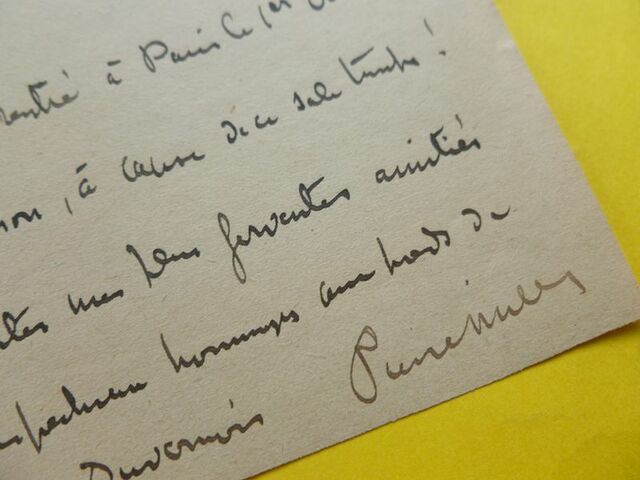 rentré à Paris le 1er
non, à cause de ce sale temps !
toutes mes plus ferventes amitiés
respectueux hommages aux pieds de
Duvernois Pierre Mille